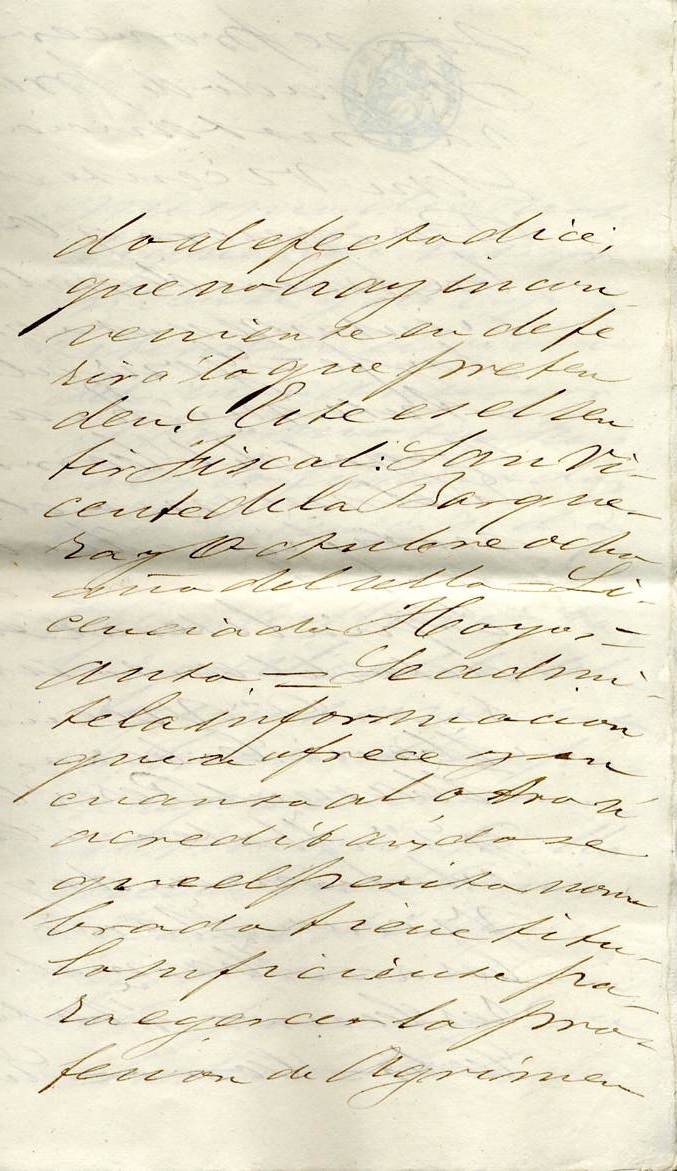 do al efecto dice;
que no hay incon
veniente en defe
rir a lo que preten
den. Este es el sen
tir Fiscal: San Vi-
cente de la Barque-
ra y Octubre ocho
año del sello = Li-
cenciado Hoyos =
auto = Se admi-
te la informacion
que ofrece y en
cuanto al otro si
acreditandose
que el perito nom
brado tiene titu-
lo suficiente pa-
ra egercer la pro-
fesion de Agrimen